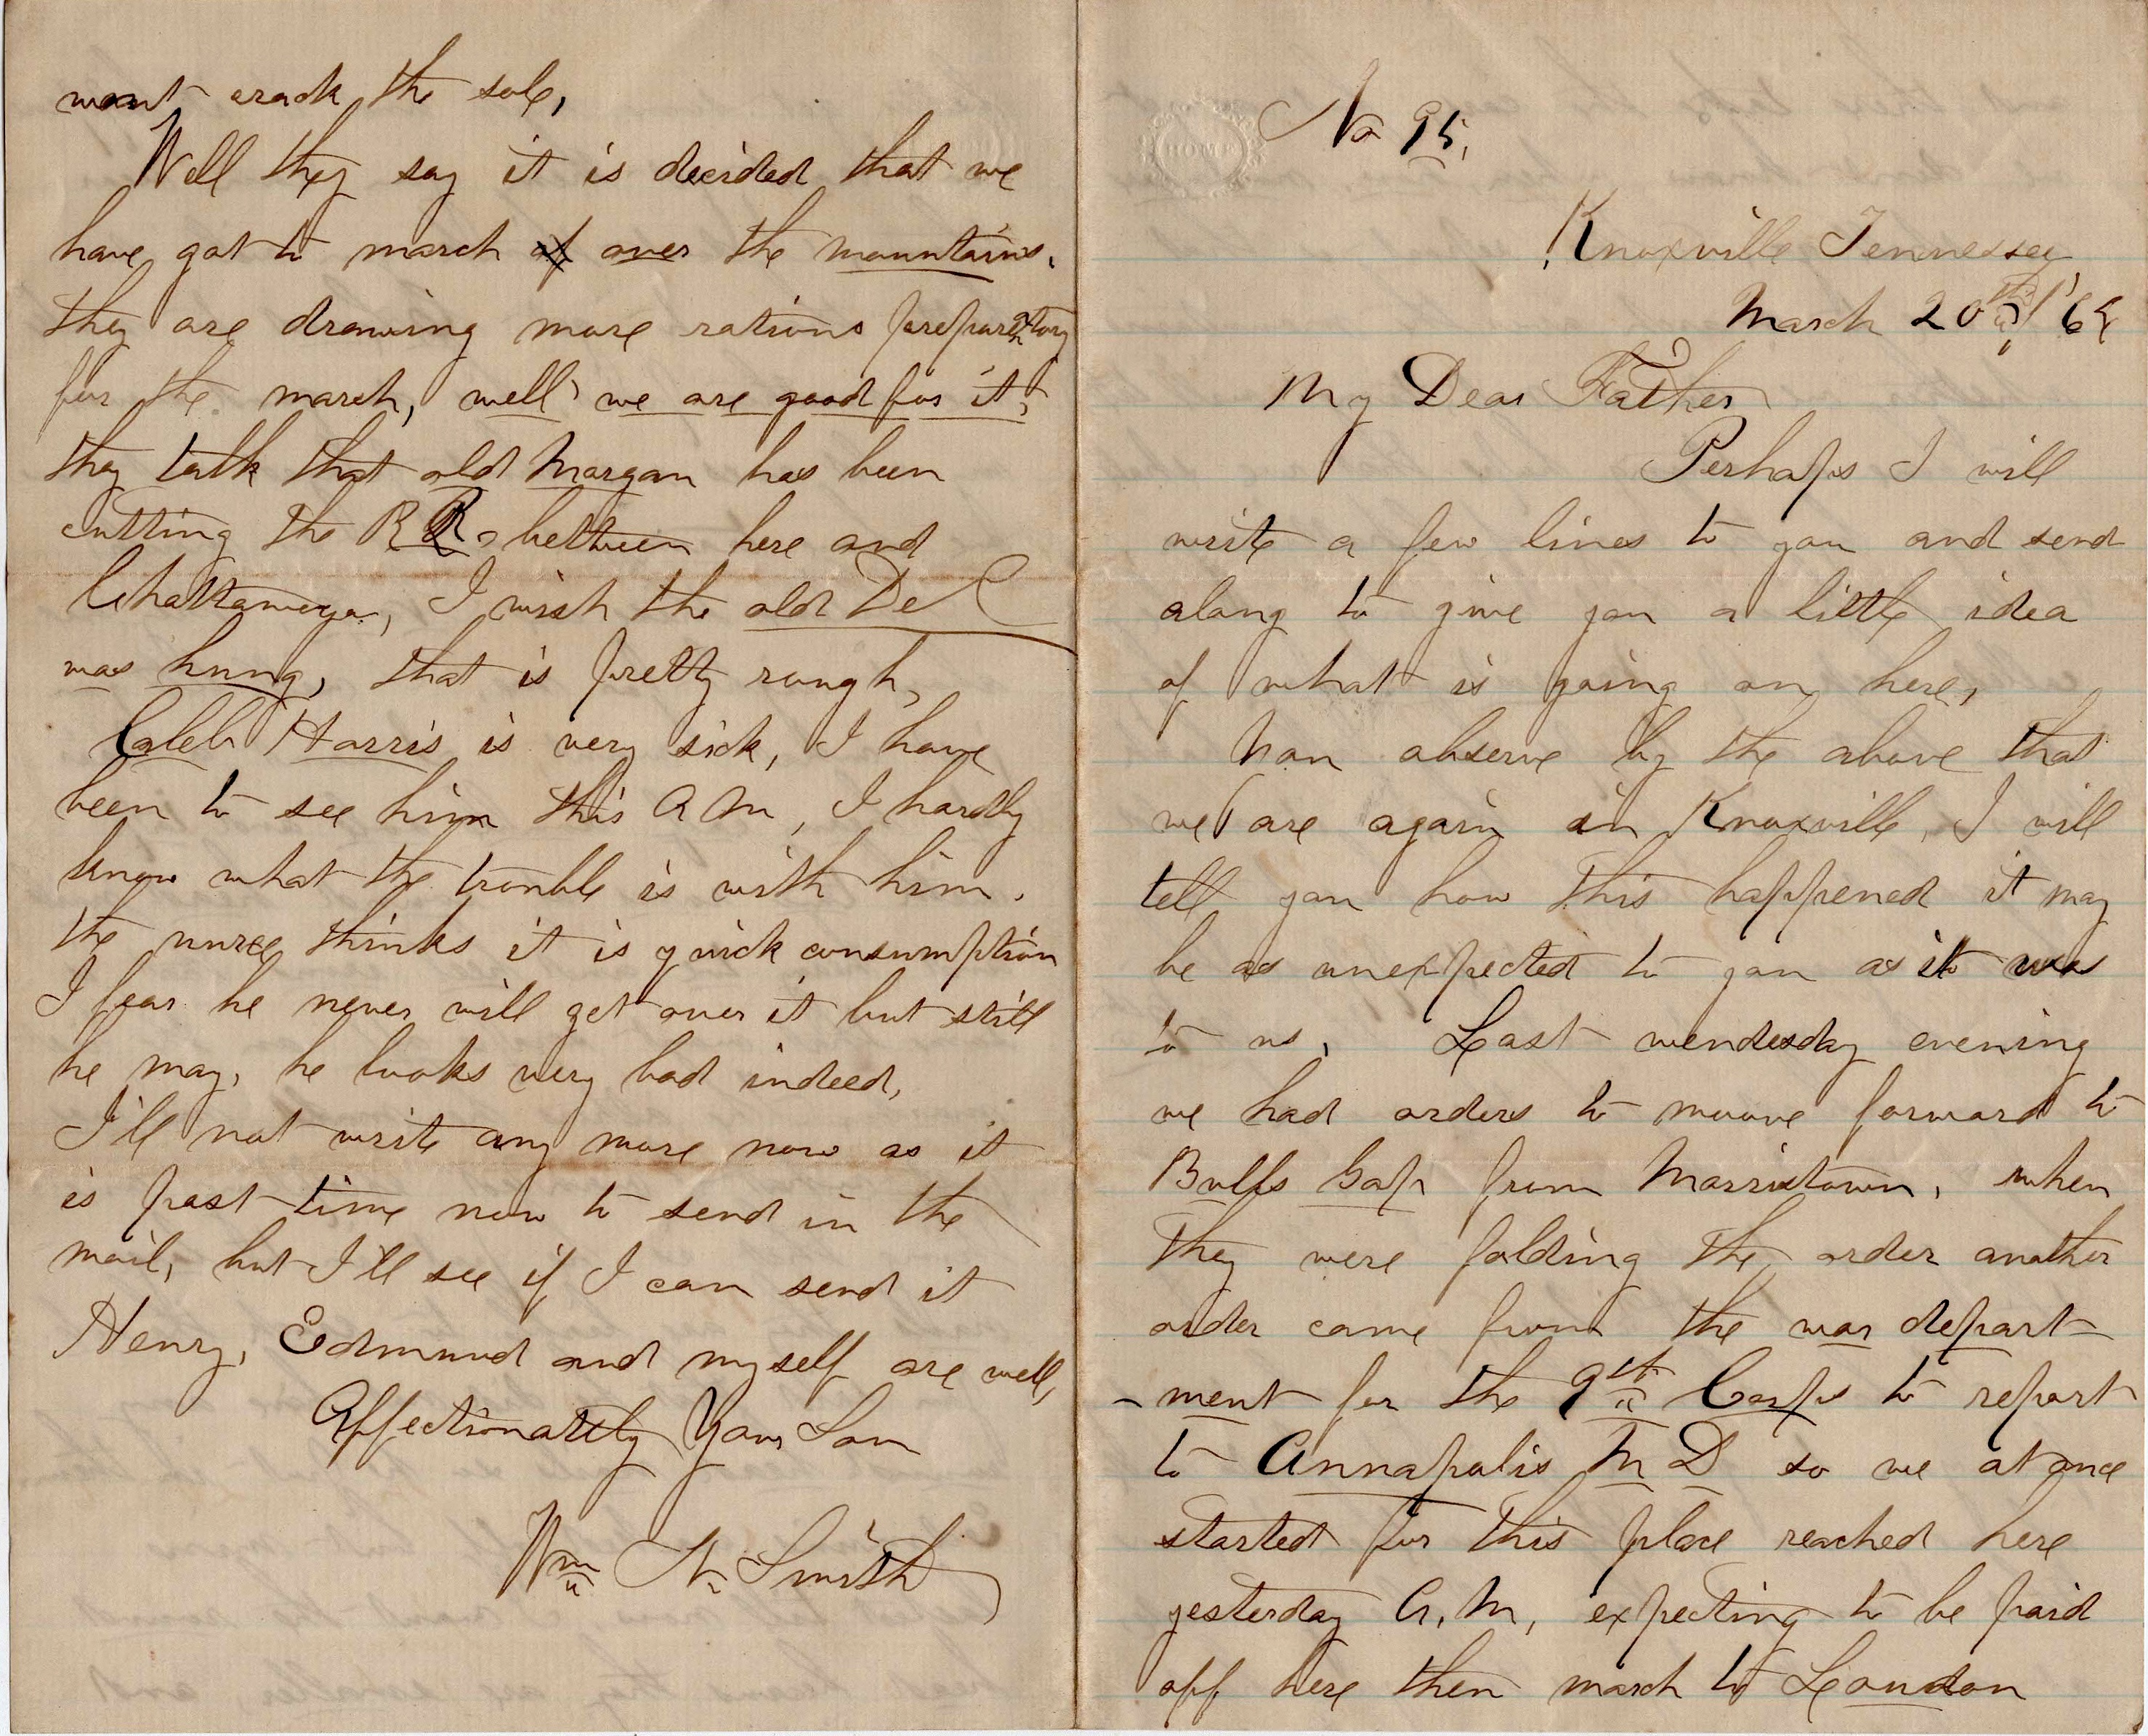 No 95.
Knoxville Tennessey
March 20th '64
My Dear Father
Perhaps I will
write a few lines to you and send
along to give you a little idea
of what is going on here,
You observe by the above that
we are again in Knoxville, I will
tell you how this happened it may
be as unexpected to you as it was
to us, Last wendesday evening
we had orders to moove forward to
Bulls Gap from Morristown, when
they were folding the order another
order came from the war depart-
-ment for the 9th Corps to report
to Annapolis M D so we at once
started for this place reached here
yesterday A.M, expecting to be paid
off here then march to Loudon
wont crack the sole,
Well they say it is decided that we
have got to march of over the mountains.
they are drawing more rations preparatory
for the march, well we are good for it,
they talk that old Morgan has been
cutting the R R. between here and
Chattanooga, I wish the old Del
was hung, that is pretty rough,
Caleb Harris is very sick, I have
been to see him this A M, I hardly
know what the trouble is with him.
the nurse thinks it is quick consumption
I fear he never will get over it but still
he may, he looks very bad indeed,
I'll not write any more now as it
is past time now to send in the
mail, but I'll see if I can send it
Henry, Edmund and myself are well,
Affectionately Your Son
Wm H. Smith